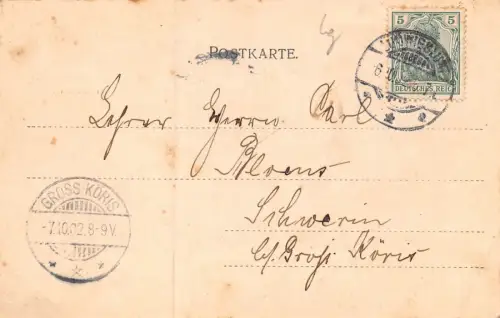 POSTKARTE.
5 5
DEUTSCHES REICH
Lehrer Herrn Carl
Schwerin
b/ Groß Köris
GROSS KÖRIS
-7.10.02.8-9V.